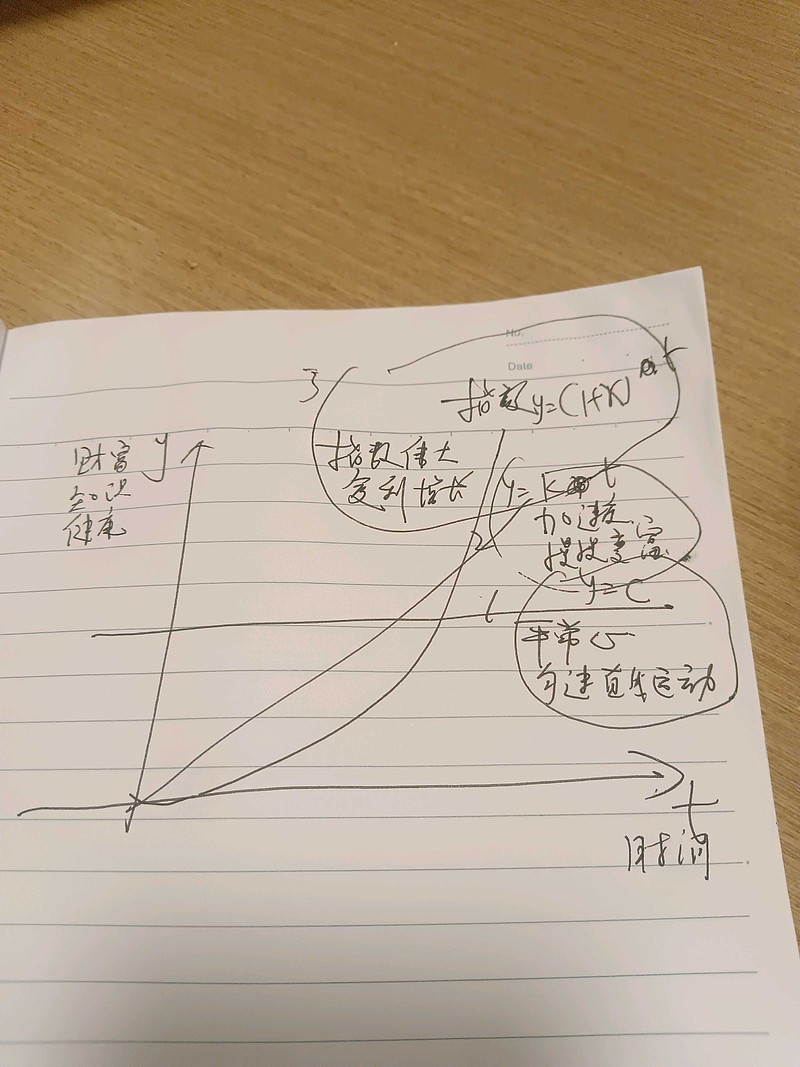 No.
Date
3
指数y=(1+x)^t
指数伟大
复利增长
财富 y
知识
健康
2
y=k t
加速度
慢慢变富
y=C
1
平常心
匀速直线运动
t
时间